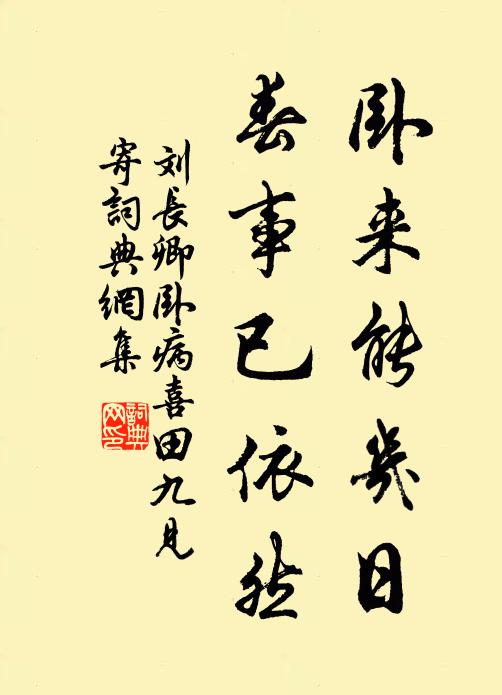 卧来能几日
春事已依然
刘长卿卧病喜田九见
寄词典网集
词典网印